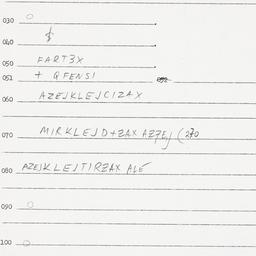 030 O
040
050 FART3X
051 + QFENSI
060 AZEJKLEJCIZAX
070 MIRKLEJD+ZAX AZ7EJ (270
080 AZEJKLEJTIRZAX ALÉ
090 O
100 O